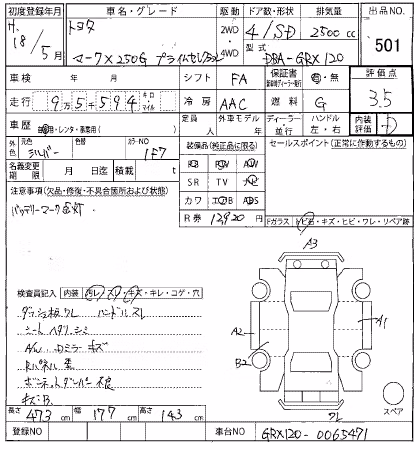 初度登録年月 車名・グレード 駆動 ドア数,形状 排気量 出品NO.
H. 18/5月 トヨタ 2WD 4/SD 2500cc 501
マークX 250G プライムセレクション 4WD 型式 DBA-GRX120
車検 年 月 シフト FA 保証書 有・無 評価点
走行 9万5千594 キロ マイル 冷房 AAC 燃料 G 3.5
車歴 自家用・レンタ・事業用( ) 定員 人 外車モデル 年 ディーラー 並行 ハンドル 左・右 内装評価 D
外色 元色 シルバー 色替 カラーNO 1F7 装備品(純正品に限る) セールスポイント(正常に作動するもの)
名義変更期限 月 日迄 積載量 t PS SR カワ PW TV エアB AW ナビ ABS
注意事項(欠品・修復・不具合箇所および状態) R券 12,920円
バッテリーマーク点灯. Fガラス トビ石・キズ・ヒビ・ワレ・リペア跡
A3
検査員記入 内装 汚レ・スレ・キズ・キレ・コゲ・穴
ダッシュ板ワレ ハンドルスレ
シートヘタリ シミ
A/W. Dミラーキズ
Rパネル歪
ボンネットダンパー不良
キズB.
A2 A1
B2
ワレ スペア
長さ 473cm 幅 177cm 高さ 143cm
登録NO 車台NO GRX120-0065471